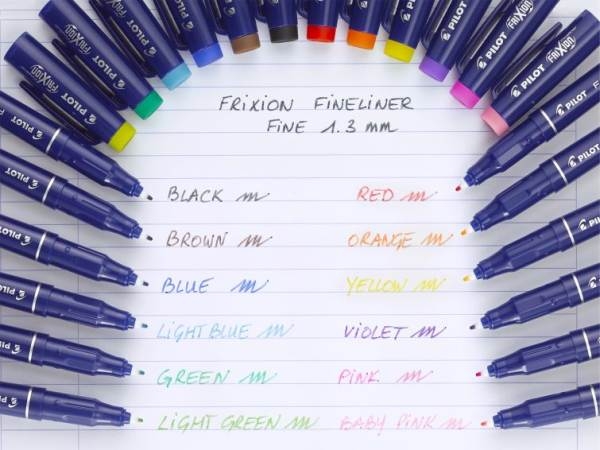 FRIXION FINELINER
FINE 1.3 mm
BLACK
BROWN
BLUE
LIGHT BLUE
GREEN
LIGHT GREEN
RED
ORANGE
YELLOW
VIOLET
PINK
BABY PINK
PILOT
FRIXION
PILOT
FRIXION
PILOT
PILOT
PILOT
PILOT
PILOT
FRIXION
PILOT
FRIXION
PILOT
PILOT
PILOT
PILOT
PILOT
PILOT
PILOT
PILOT
PILOT
PILOT